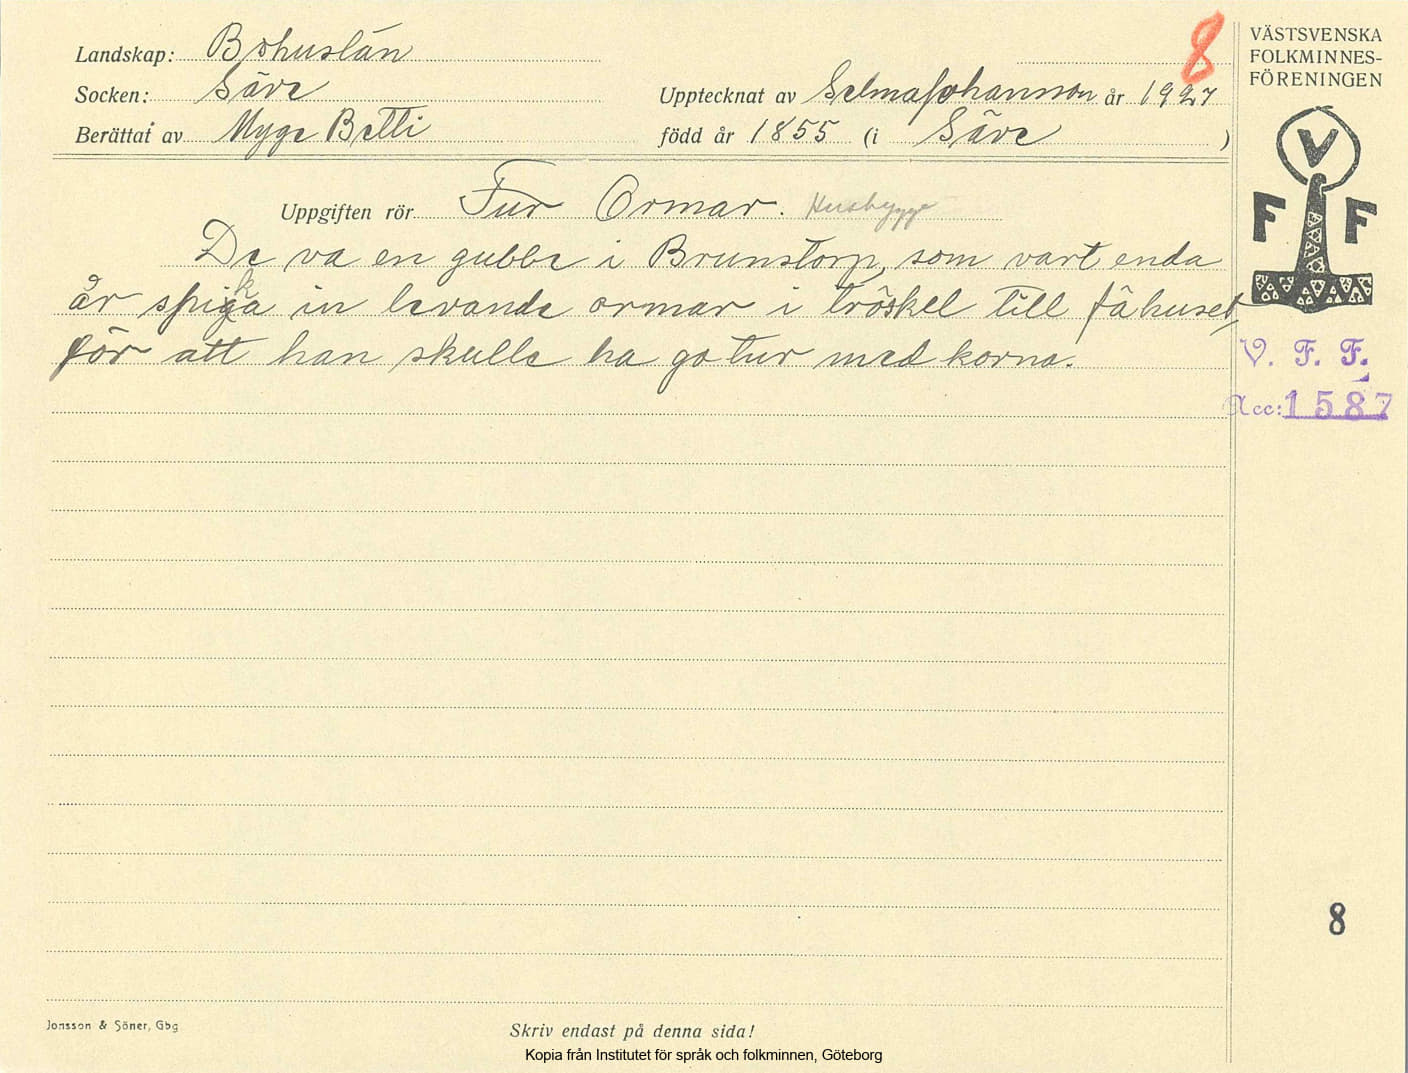 8
VÄSTSVENSKA
FOLKMINNES-
FÖRENINGEN
Landskap: Bohuslän
Socken: Säve
Upptecknat av Selma Johansson år 1927
Berättat av Myge Betti
född år 1855 (i Säve )
V
F F
Uppgiften rör Fur Ormar. Husbygge
De va en gubbe i Brunstorp, som vart enda
år spika in levande ormar i tröskel till fähuset,
för att han skulle ha go tur med korna.
V. F. F.
Acc: 1587
8
Jonsson & Söner, Gbg
Skriv endast på denna sida!
Kopia från Institutet för språk och folkminnen, Göteborg